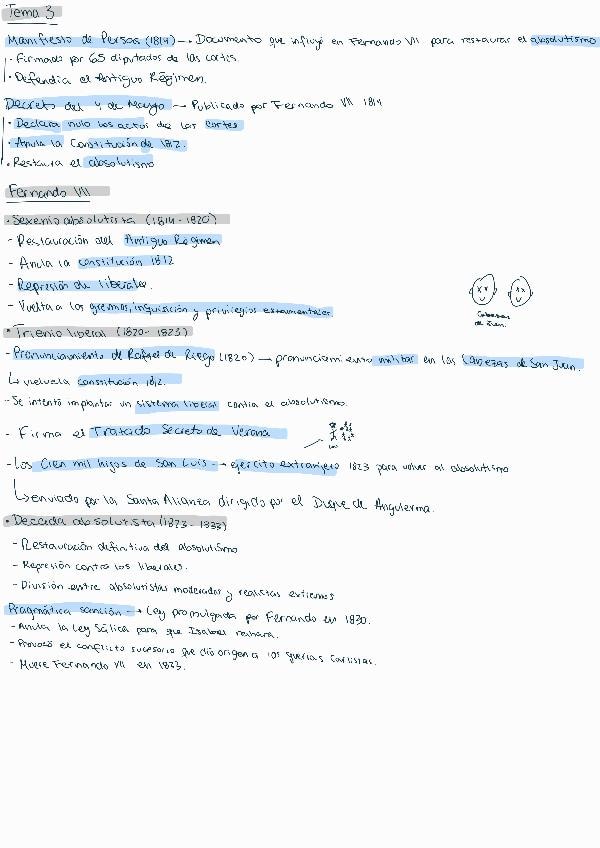 Tema 3
Manifiesto de Persas (1814) → Documento que influyó en Fernando VII para restaurar el absolutismo
· Firmado por 65 diputados de las cortes.
· Defendía el Antiguo Régimen.
Decreto del 4 de Mayo → Publicado por Fernando VII 1814
· Declara nulo los actos de las cortes
· Anula la Constitución de 1812.
· Restaura el absolutismo
Fernando VII
· Sexenio absolutista (1814-1820)
- Restauración del Antiguo Régimen
- Anula la constitución 1812
- Represión de liberales.
- Vuelta a los gremios, inquisición y privilegios estamentales
Cabezas de San Juan.
· Trienio liberal (1820-1823)
- Pronunciamiento de Rafael de Riego (1820) → pronunciamiento militar en las Cabezas de San Juan.
↳ vuelve la constitución 1812.
- Se intentó implantar un sistema liberal contra el absolutismo.
- Firma el Tratado Secreto de Verona
- Los Cien mil hijos de San Luis → ejército extranjero 1823 para volver al absolutismo
↳ enviado por la Santa Alianza dirigido por el Duque de Angulerma.
· Decada absolutista (1823-1833)
- Restauración definitiva del absolutismo
- Represión contra los liberales.
- División entre absolutistas moderados y realistas extremos
Pragmática sanción → Ley promulgada por Fernando en 1830.
- Anula la Ley Sálica para que Isabel reinara.
- Provocó el conflicto sucesorio que dio origen a las guerras carlistas.
- Muere Fernando VII en 1833.